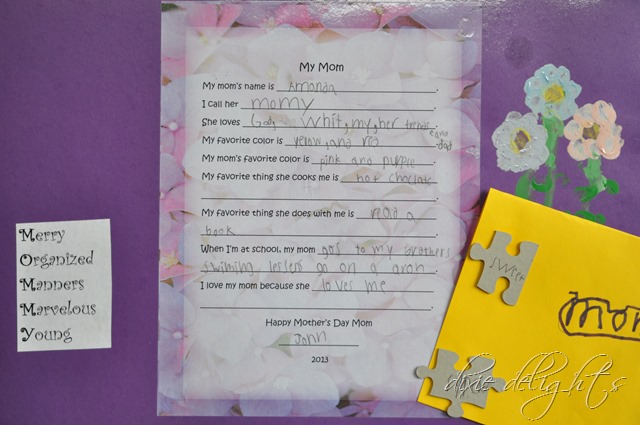 My Mom
My mom's name is Amanda.
I call her momy.
She loves God, whit, my, her frends
and dad
My favorite color is yelow, and red.
My mom's favorite color is pink and purple.
My favorite thing she cooks me is hot choclate
My favorite thing she does with me is read a
book.
When I'm at school, my mom gos to my brothers
swiming lessens go on a
I love my mom because she loves me
Happy Mother's Day Mom
John
2013
Merry
Organized
Manners
Marvelous
Young
sweet
mom
dixie delights